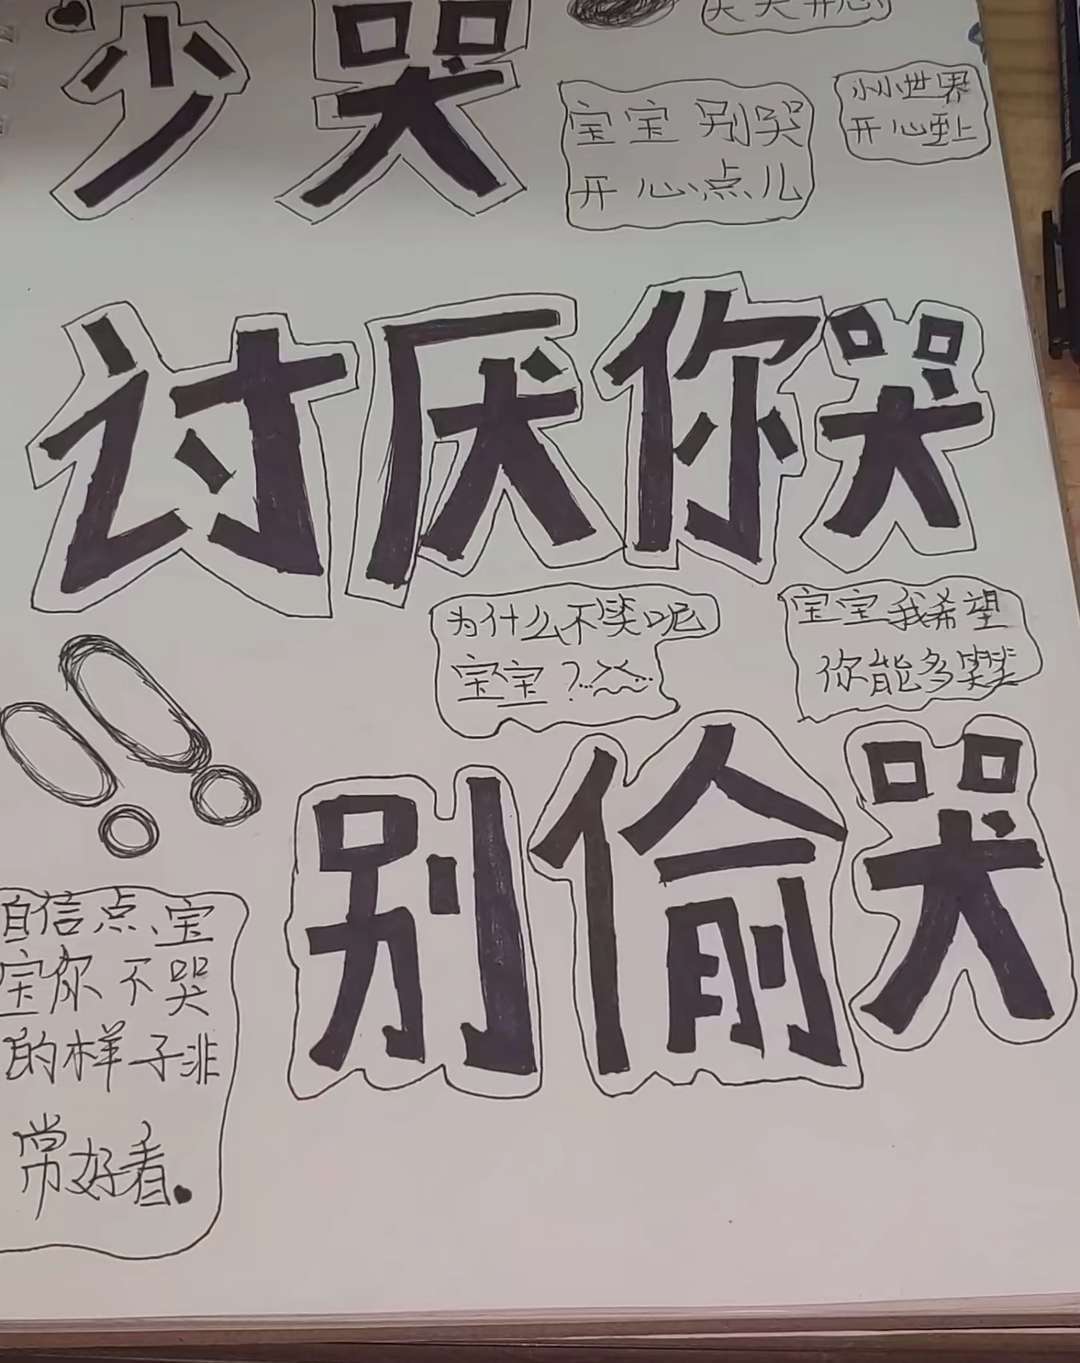 少哭
天天开心
宝宝别哭
开心点儿
小小世界
开心至上
讨厌你哭
为什么不笑呢
宝宝?
宝宝我希望
你能多笑笑
别偷哭
自信点宝
宝你不哭
的样子非
常好看